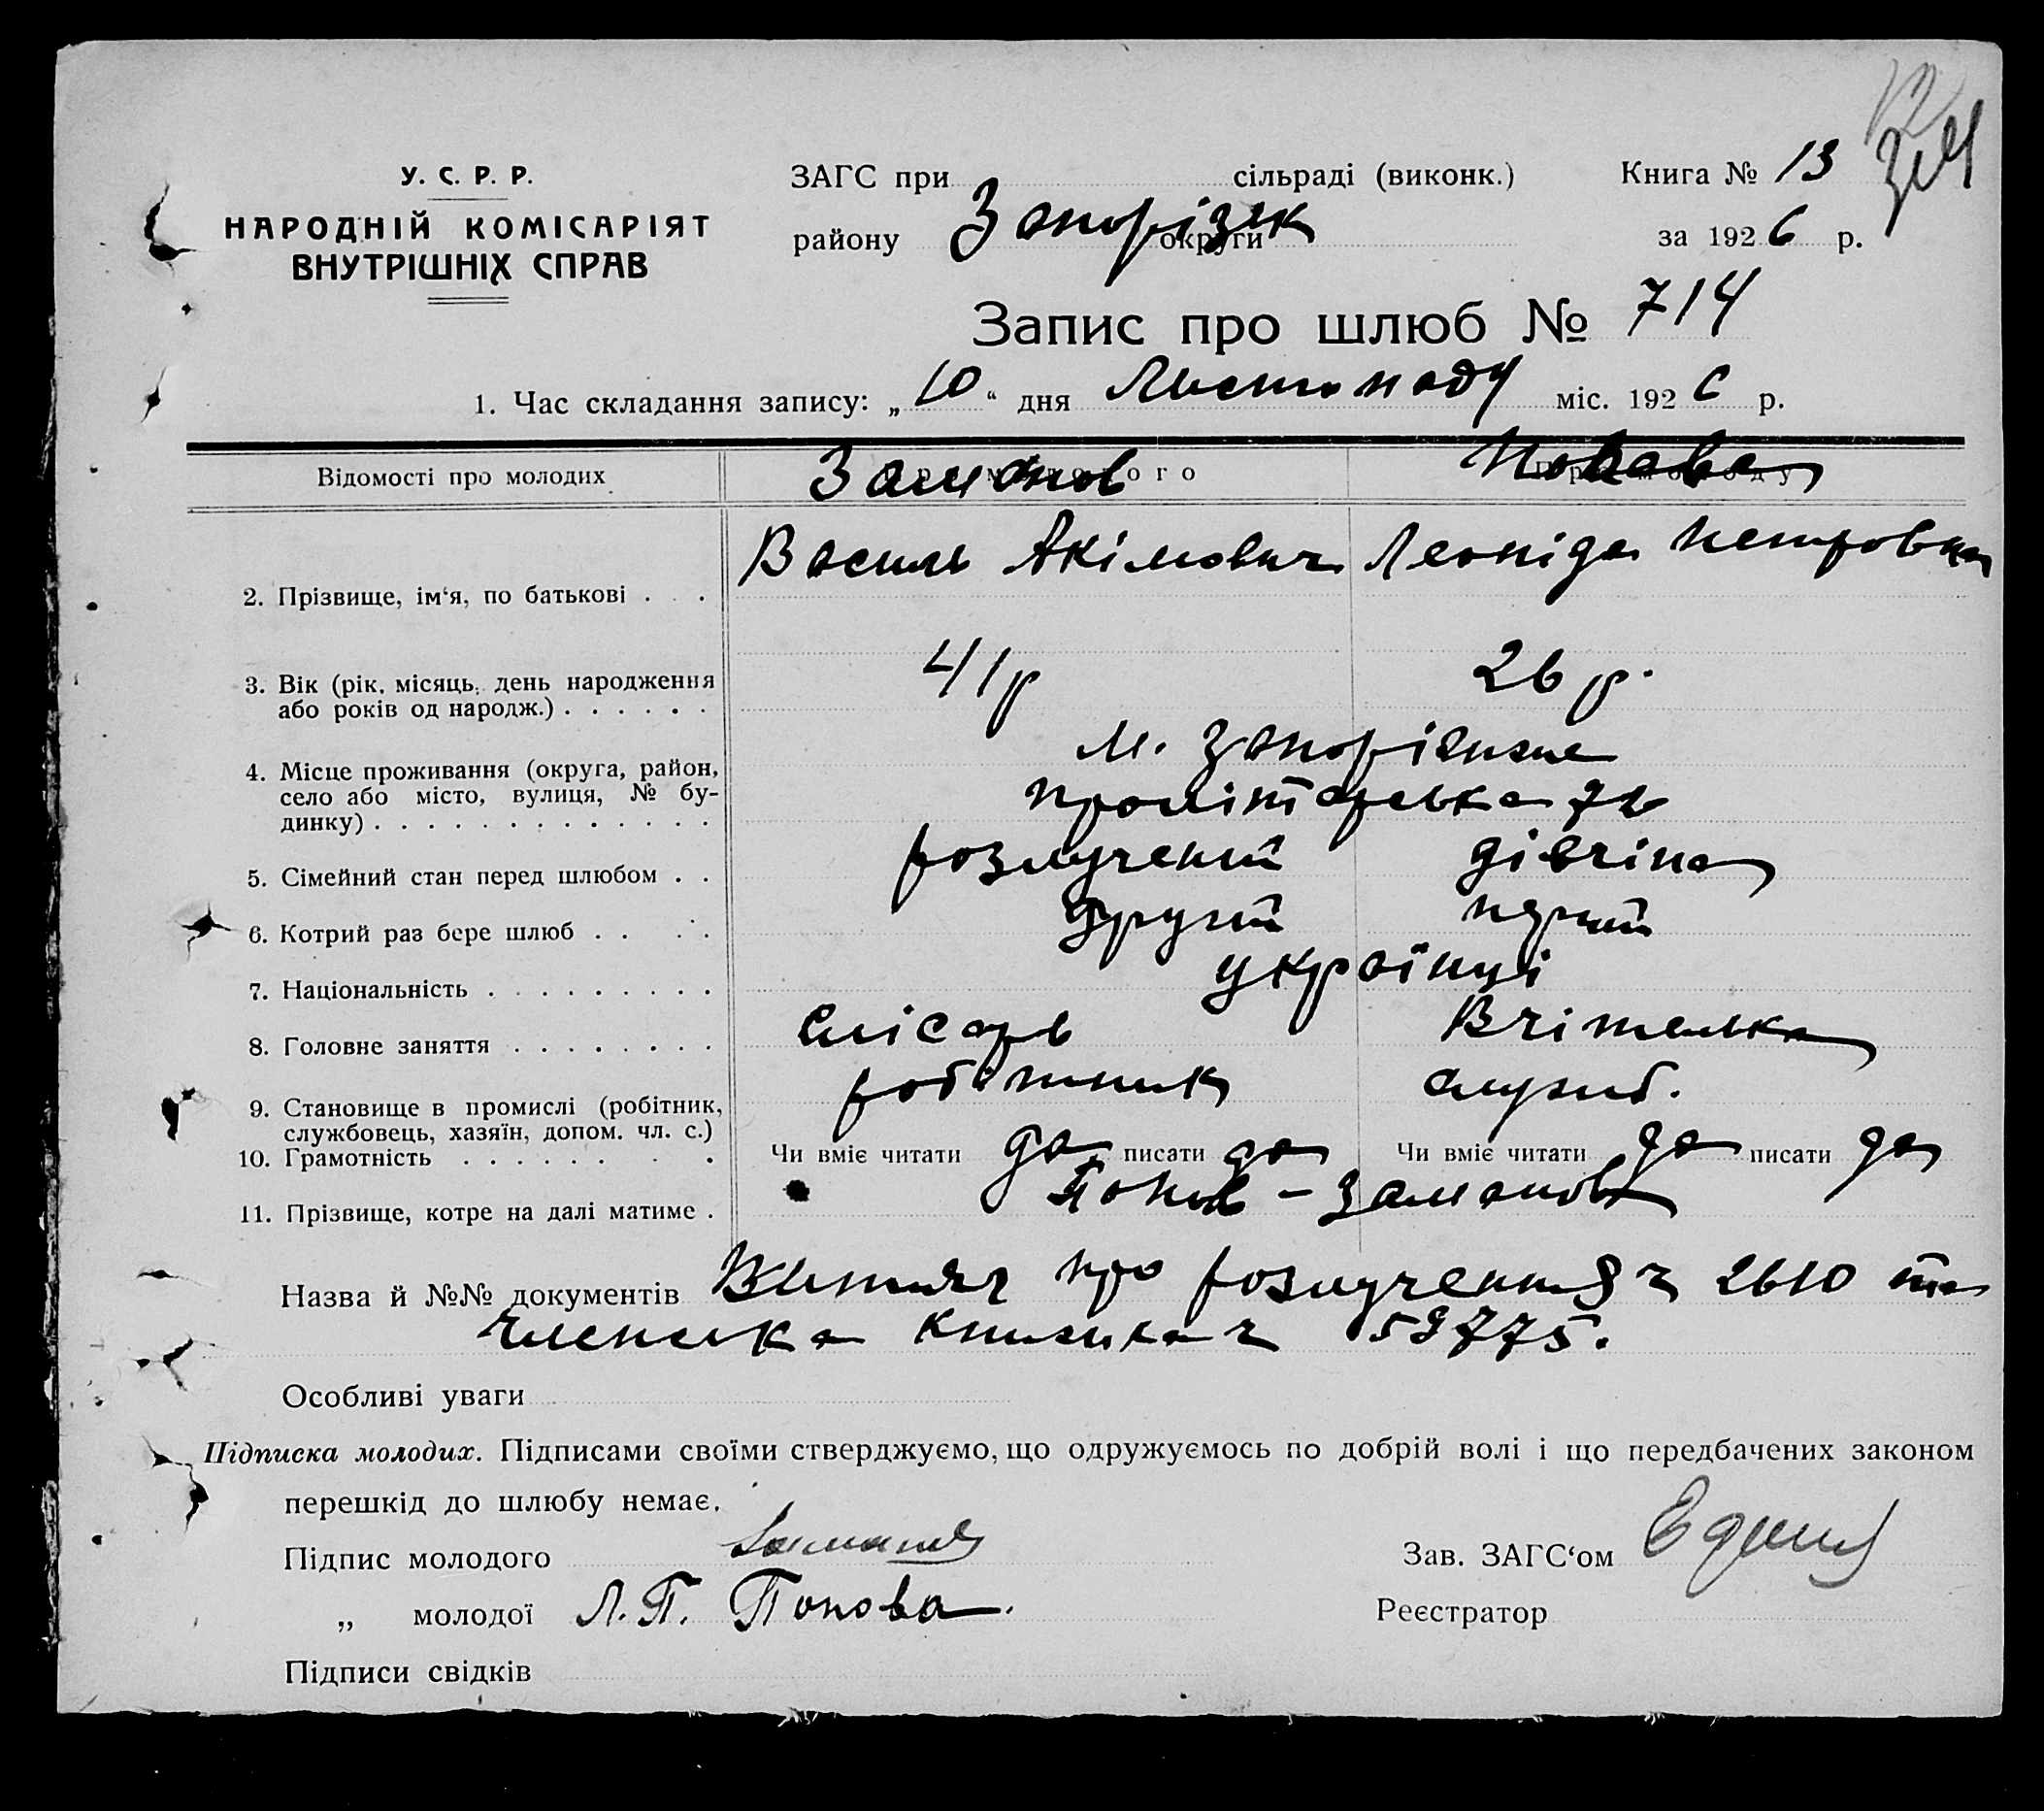 У. С. Р. Р.
НАРОДНІЙ КОМІСАРІЯТ
ВНУТРІШНІХ СПРАВ
ЗАГС при сільраді (виконк.) Книга № 13
району Запорізьк округи за 1926 р.
Запис про шлюб № 714
1. Час складання запису: „10“ дня Листопаду міс. 1926 р.
Відомості про молодих Заманов Попова
2. Прізвище, ім‘я, по батькові . . . Василь Акімович Леоніда Петровна
3. Вік (рік, місяць, день народження
або років од народж.) . . . . . . 41 р 26 р.
4. Місце проживання (округа, район,
село або місто, вулиця, № бу-
динку) . . . . . . . . . . . . . м. Запоріжже
пролітарська
5. Сімейний стан перед шлюбом . . розлучений дівчіна
6. Котрий раз бере шлюб . . . . другий перший
7. Національність . . . . . . . . . українці
8. Головне заняття . . . . . . . . слісарь Вчітелька
9. Становище в промислі (робітник,
службовець, хазяїн, допом. чл. с.) робітник служб.
10. Грамотність . . . . . . . . Чи вміє читати да писати да Чи вміє читати да писати да
11. Прізвище, котре на далі матиме . Попов - Заманов
Назва й №№ документів Витяг про розлучення ч 2610 та
Членська книжка ч 59775.
Особливі уваги
Підписка молодих. Підписами своїми стверджуємо, що одружуємось по добрій волі і що передбачених законом
перешкід до шлюбу немає.
Підпис молодого Заманов Зав. ЗАГС‘ом
„ молодої Л. П. Попова. Реєстратор
Підписи свідків